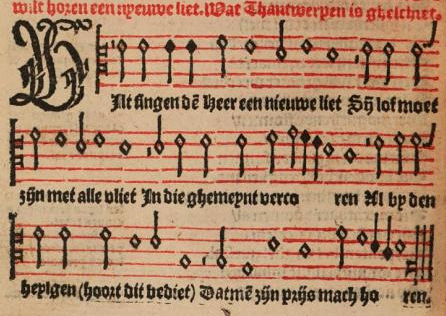 wilt horen een nyeuwe liet. Wat Thantwerpen is gheschiet.
Hylt singen dē Heer een nieuwe liet Sij lof moet
zijn met alle vliet In die ghemeynt verco ren Al by den
heylgen (hoort dit bediet) Datmē zijn prijs mach ho ren.